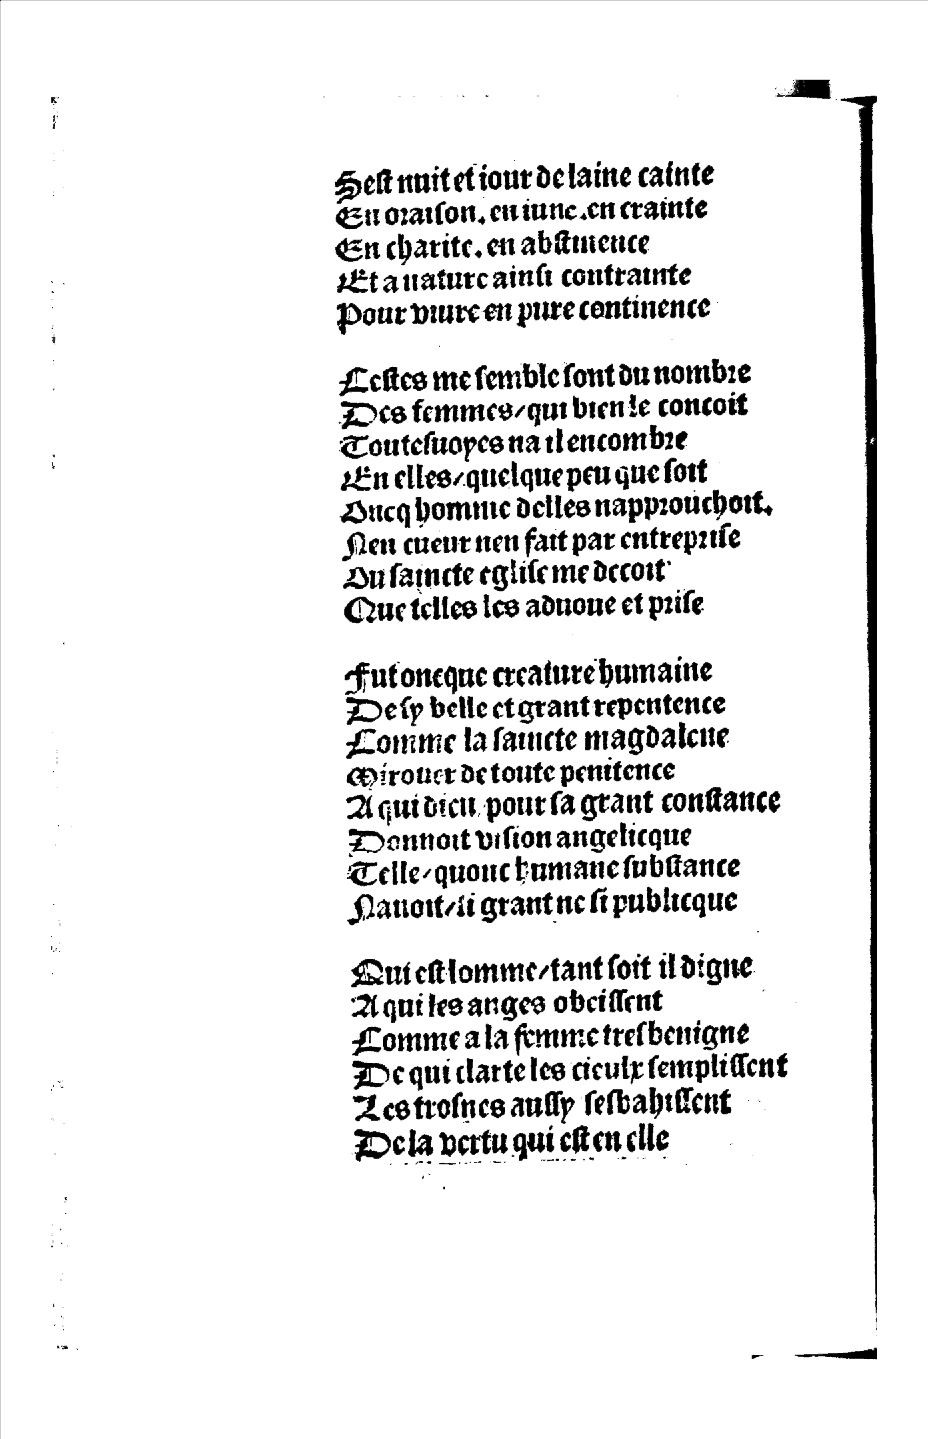 Sest nuit et iour de laine cainte
En oraison. en iune. en crainte
En charite. en abstinence
Et a nature ainsi contrainte
Pour viure en pure continence

Cestes me semble sont du nombre
Des femmes/ qui bien le concoit
Toutesuoyes na il encombre
En elles/ quelque peu que soit
Oncq homme delles napprouchoit.
Nen cueur nen fait par entreprise
Ou saincte eglise me decoit
Que telles les aduoue et prise

Fut oncque creature humaine
De sy belle et grant repentence
Comme la saincte magdalene
Mirouer de toute penitence
A qui dieu pour sa grant constance
Donnoit vision angelicque
Telle/ quonc humane substance
Nauoit/ si grant ne si publicque

Qui est lomme/ tant soit il digne
A qui les anges obeissent
Comme a la femme tresbenigne
De qui clarte les cieulx semplissent
Les trosnes aussy sesbahissent
De la vertu qui est en elle